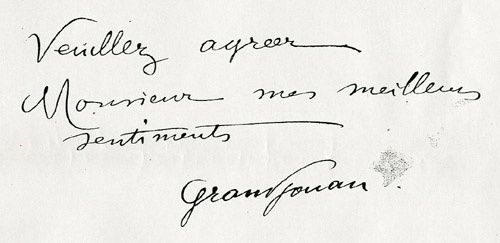 Veuillez agréer
Monsieur mes meilleurs
sentiments
Grandjouan